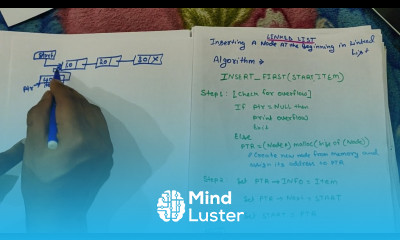 Start
10
20
30 X
40
Ptr
LINKED LIST
Inserting A Node At the Beginning in Linked List
Algorithm →
INSERT_FIRST(START, ITEM)
Step 1: [Check for overflow]
If ptr = NULL then
print overflow
Exit
Else
PTR = (Node *) malloc (size of (Node))
// Create new node from memory and
assign its address to PTR
Step 2: Set PTR → INFO = Item
Set PTR → Next = START
Mind
Luster